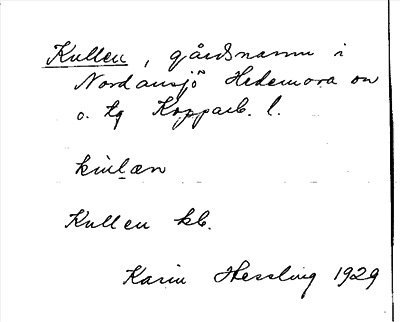 Kullen, gårdsnamn i
Nordansjö Hedemora sn
o. tg Kopparb. l.
Kullen kb.
Karin Hessling 1929